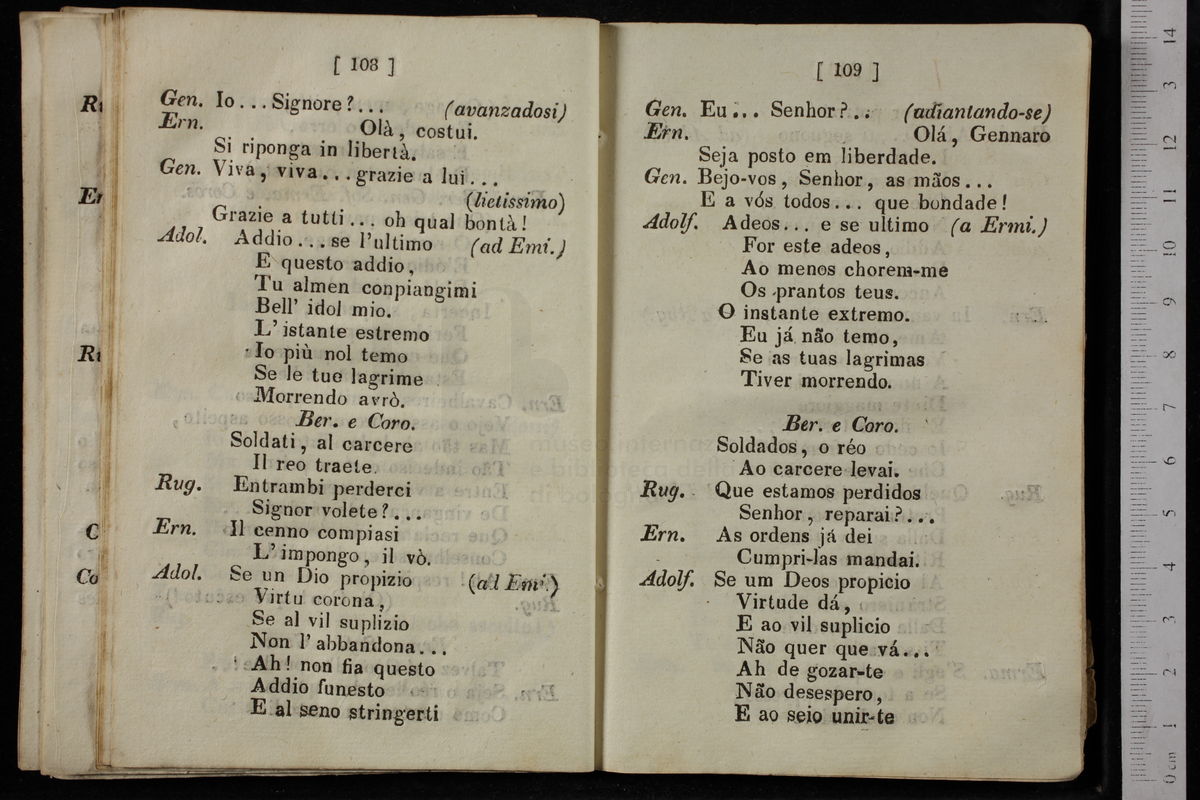 [ 108 ]
Gen. Io...Signore?... (avanzadosi)
Ern. Olà, costui.
Si riponga in libertà.
Gen. Viva, viva...grazie a lui...
(lietissimo)
Grazie a tutti... oh qual bontà!
Adol. Addio...se l'ultimo (ad Emi.)
E questo addio,
Tu almen conpiangimi
Bell' idol mio.
L' istante estremo
Io più nol temo
Se le tue lagrime
Morrendo avrò.
Ber. e Coro.
Soldati, al carcere
Il reo traete.
Rug. Entrambi perderci
Signor volete?...
Ern. Il cenno compiasi
L' impongo, il vò.
Adol. Se un Dio propizio (ad Emi.)
Virtu corona,
Se al vil suplizio
Non l' abbandona...
Ah! non fia questo
Addio funesto
E al seno stringerti
[ 109 ]
Gen. Eu... Senhor?.. (adiantando-se)
Ern. Olá, Gennaro
Seja posto em liberdade.
Gen. Bejo-vos, Senhor, as mãos...
E a vós todos... que bondade!
Adolf. Adeos... e se ultimo (a Ermi.)
For este adeos,
Ao menos chorem-me
Os prantos teus.
O instante extremo.
Eu já não temo,
Se as tuas lagrimas
Tiver morrendo.
Ber. e Coro.
Soldados, o réo
Ao carcere levai.
Rug. Que estamos perdidos
Senhor, reparai?...
Ern. As ordens já dei
Cumpri-las mandai.
Adolf. Se um Deos propicio
Virtude dá,
E ao vil suplicio
Não quer que vá...
Ah de gozar-te
Não desespero,
E ao seio unir-te